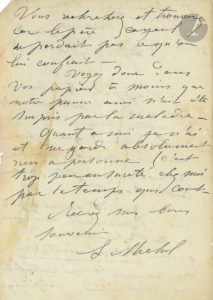 Vous rechercherez et trouverez
car le père l'argent
ne perdait pas ce qu'on
lui confiait —
Voyez donc dans
vos papiers à moins que
notre pauvre ami n'ait été
surpris par la maladie —
Quant à moi je n'ai
ne garde absolument
rien a personne c'est
trop peu sur chez moi
par le temps qui court —
Recevez mes bons
souvenirs
L Michel